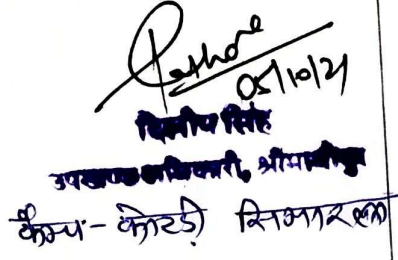 Rathore
05/10/21
दिलीप सिंह
उपखण्ड अधिकारी, श्रीमाधोपुर
कैम्प - कोटडी